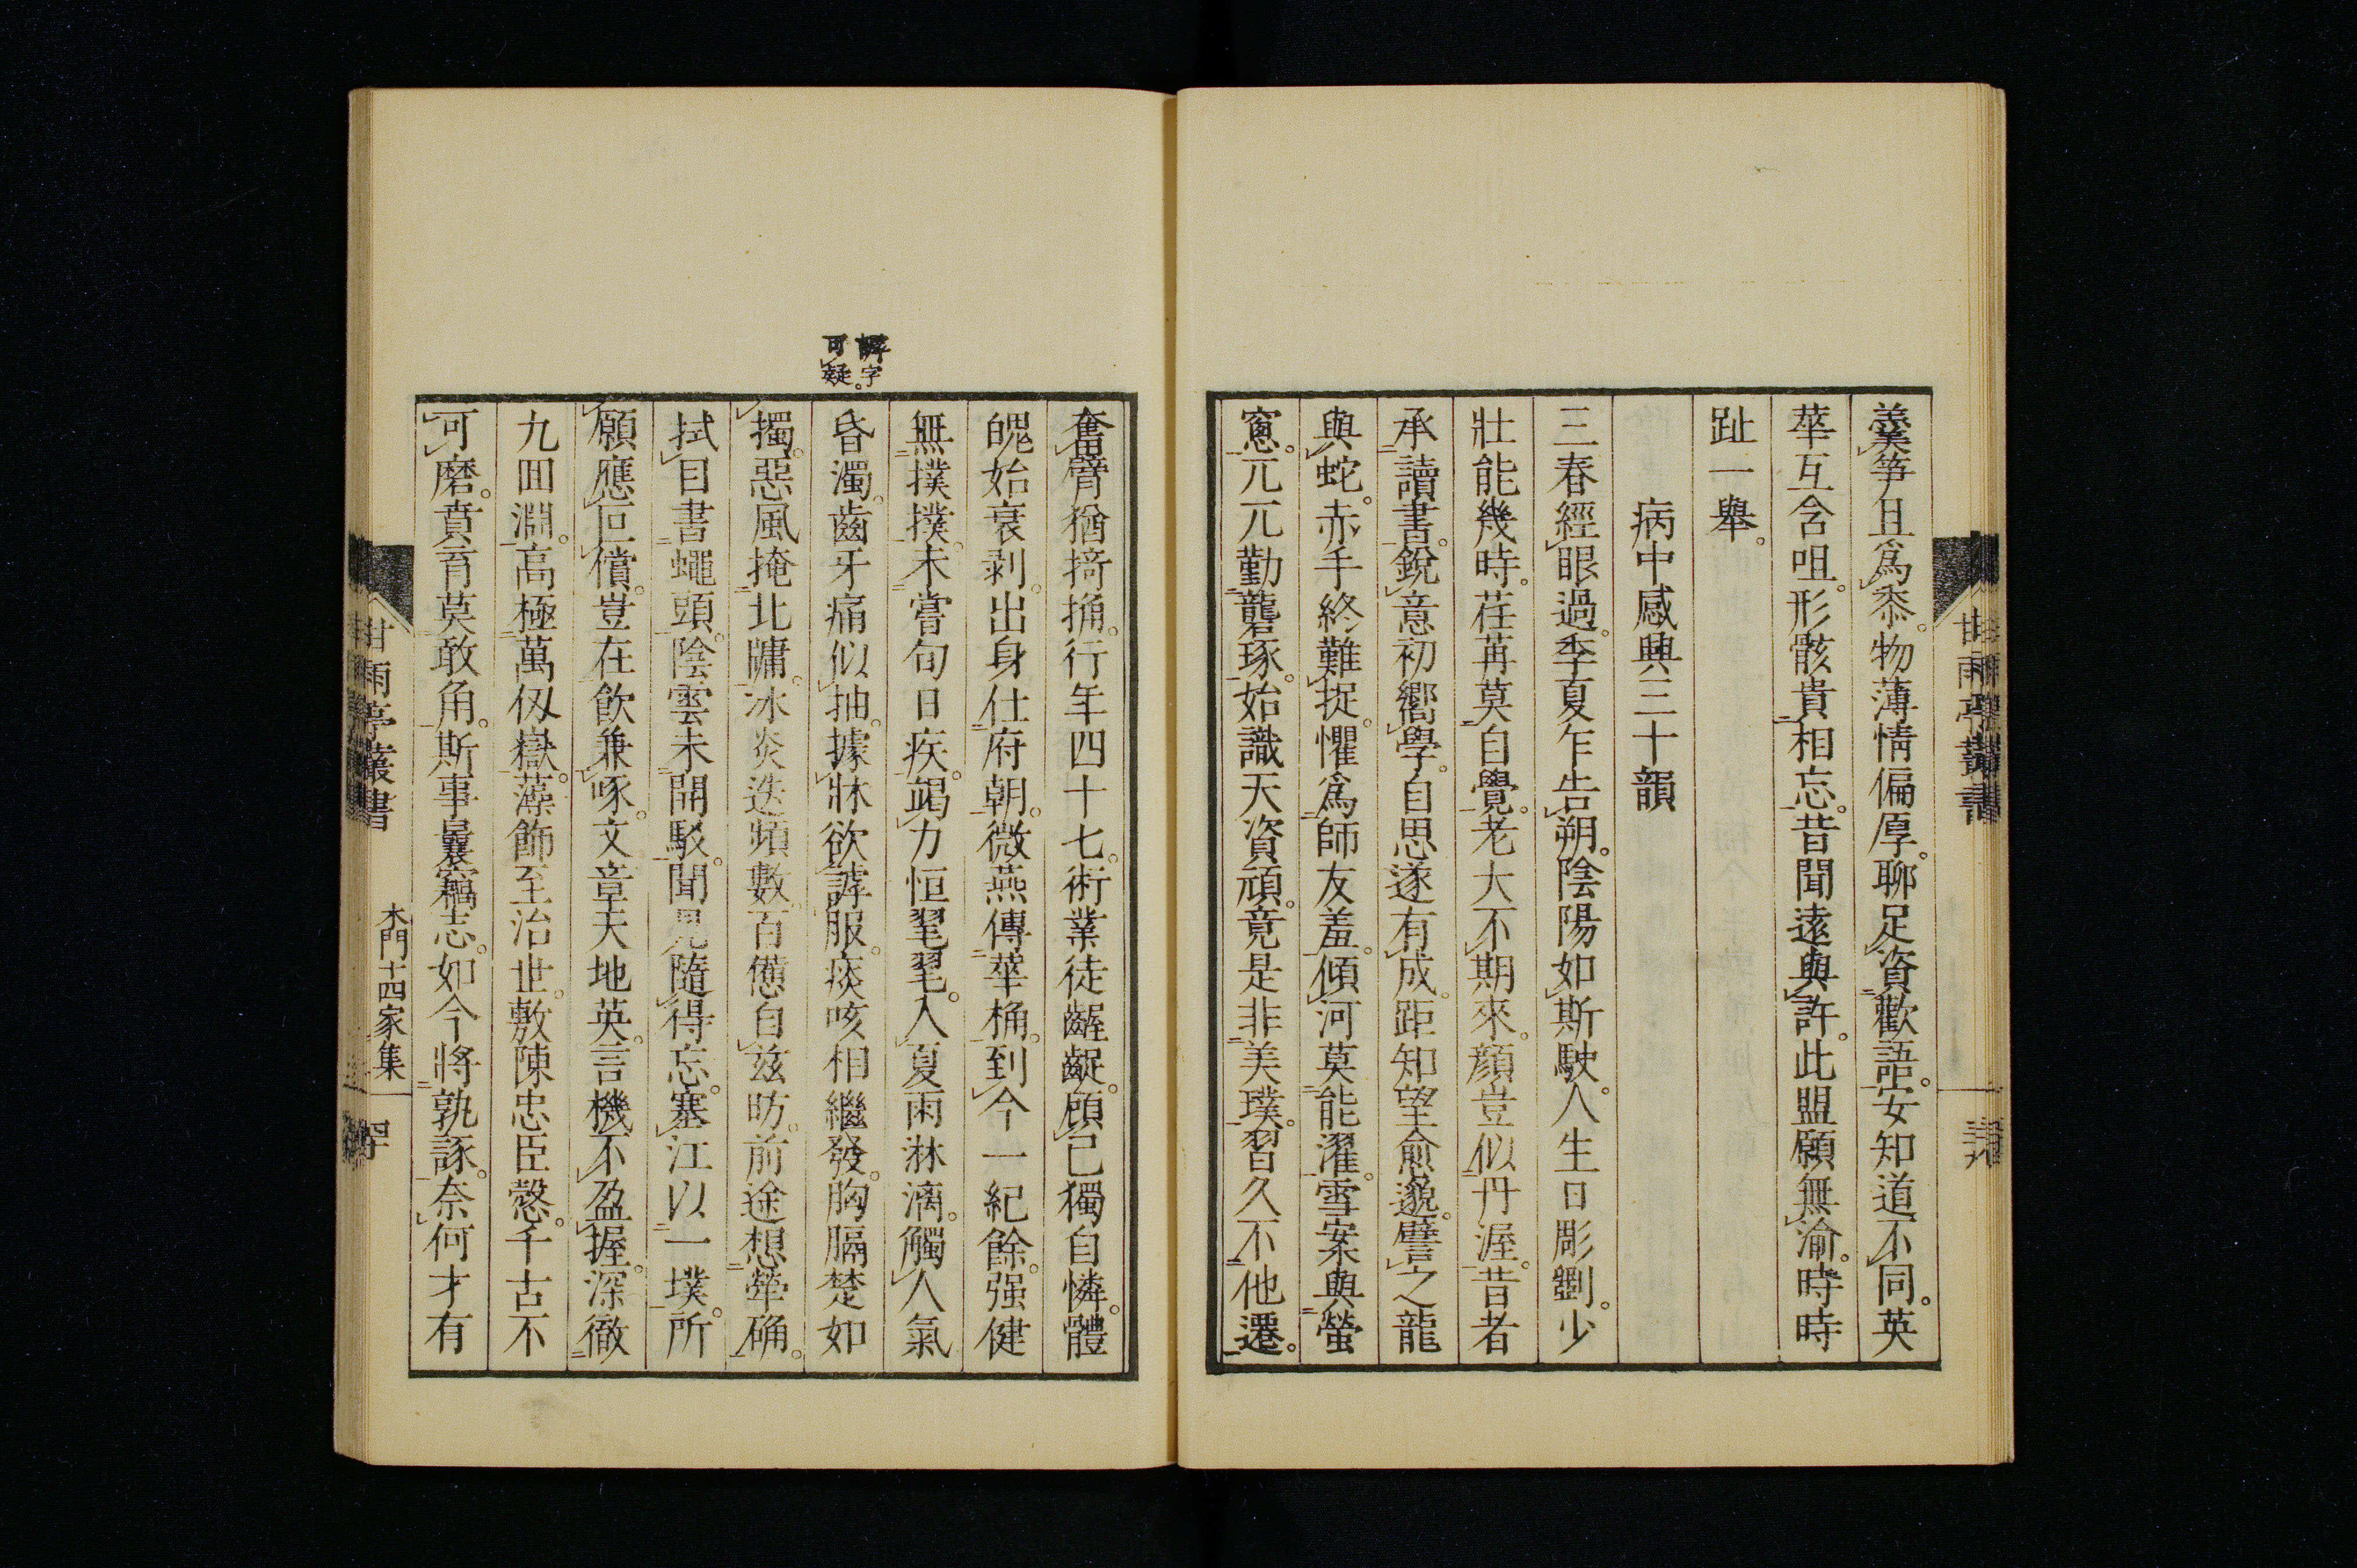 羹笋且爲黍。物薄情偏厚。聊足資歡語。安知道不同。英
華互含咀。形骸貴相忘。昔聞遠與許。此盟願無渝。時時
趾一舉。
病中感興三十韻
三春經眼過。季夏乍告朔。陰陽如斯駛。人生日彫劉。少
壯能幾時。荏苒莫自覺。老大不期來。顔豈似丹渥。昔者
承讀書。銳意初嚮學。自思遂有成。距知望愈邈。譬之龍
與蛇。赤手終難捉。懼爲師友羞。傾河莫能濯。雪案與螢
窻。兀兀勤礱琢。始識天資頑。竟是非美璞。習久不他遷。
甘雨亭叢書
奮臂猶掎捔。行年四十七。術業徒齷齪。顧己獨自憐。體
魄始衰剥。出身仕府朝。微燕傳華桷。到今一紀餘。强健
無撲撲。未嘗旬日疾。竭力恒毣毣。入夏雨淋漓。觸人氣
昏濁。齒牙痛似抽。據牀欲謼服。痰咳相繼發。胸膈楚如
擉。惡風掩北牖。冰炎迭頻數。百憊自兹昉。前途想犖确。
拭目書蠅頭。陰雲未開駁。聞見隨得忘。塞江以一墣。所
願應叵償。豈在飲兼啄。文章天地英。言機不盈握。深徹
九回淵。高極萬仭嶽。藻飾至治世。敷陳忠臣慤。千古不
可磨。賁育莫敢角。斯事曩竊志。如今將孰諑。奈何才有
謼字
可疑。
甘雨亭叢書
木門十四家集
四十